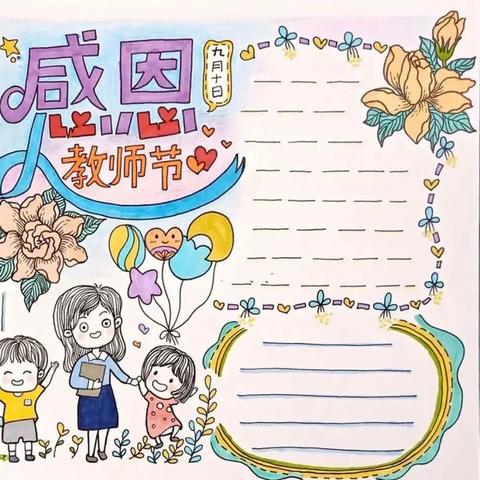 感恩
九月十日
教师节